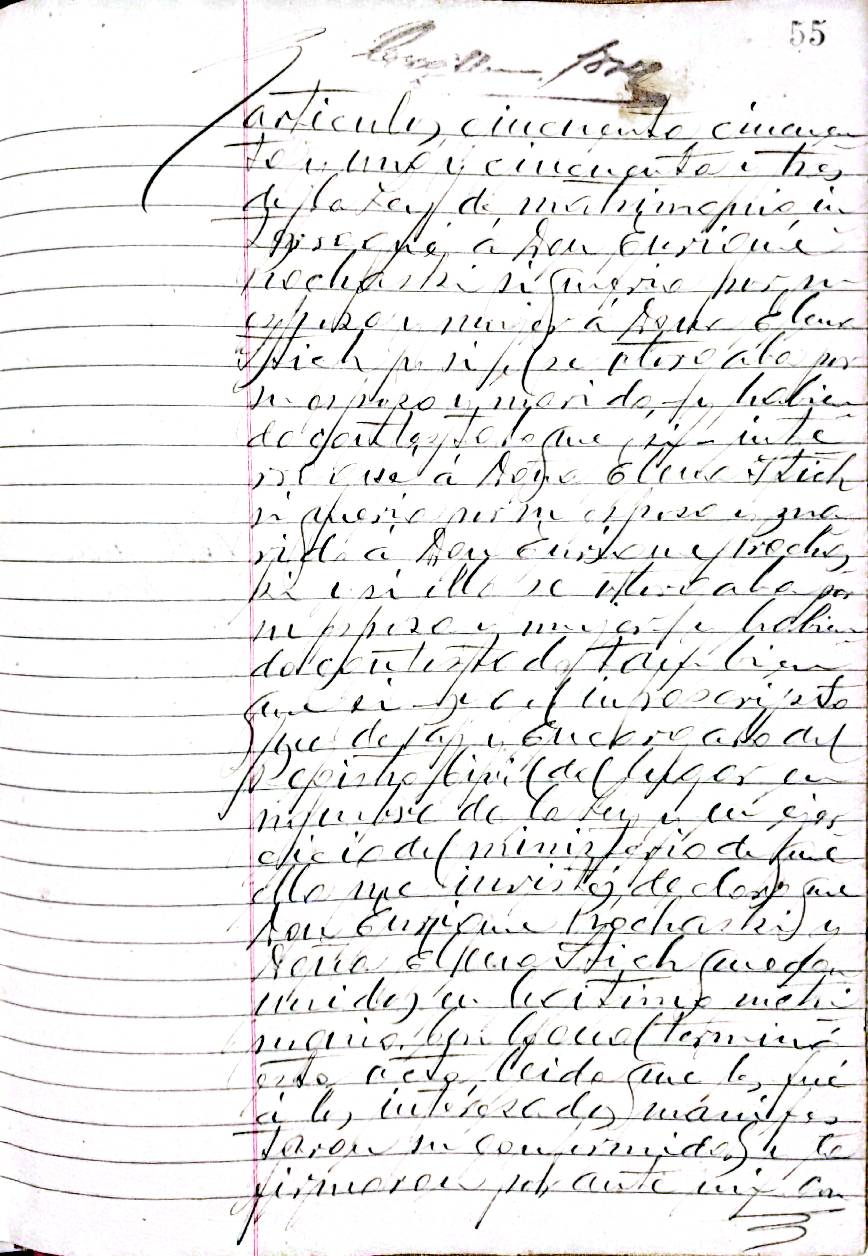 55
articulos, cincuenta, cincuen
ta y uno y cincuenta y tres
de la Ley de matrimonio in
terrogué á Don Enrique
Prochaski si queria por su
esposa y mujer á Doña Elena
Stich y si el se otorgaba por
su esposo y marido, y habien
do contestado que si - inte
rrogué á Doña Elena Stich
si queria por su esposo y ma
rido á Don Enrique Prochas
ki y si ella se otorgaba por
su esposa y mujer y habien
do contestado tambien
que si - yo el infrascripto
Juez de Paz y Encargado del
Registro Civil del lugar en
nombre de la Ley y en ejer
cicio del ministerio de que
ella me inviste, declaro que
Don Enrique Prochaski y
Doña Elena Stich quedan
unidos en lexitimo matri
monio. Con lo cual terminó
esta acta, leida que les fué
á los interesados, manifes
taron su conformidad y la
firmaron por ante mi con